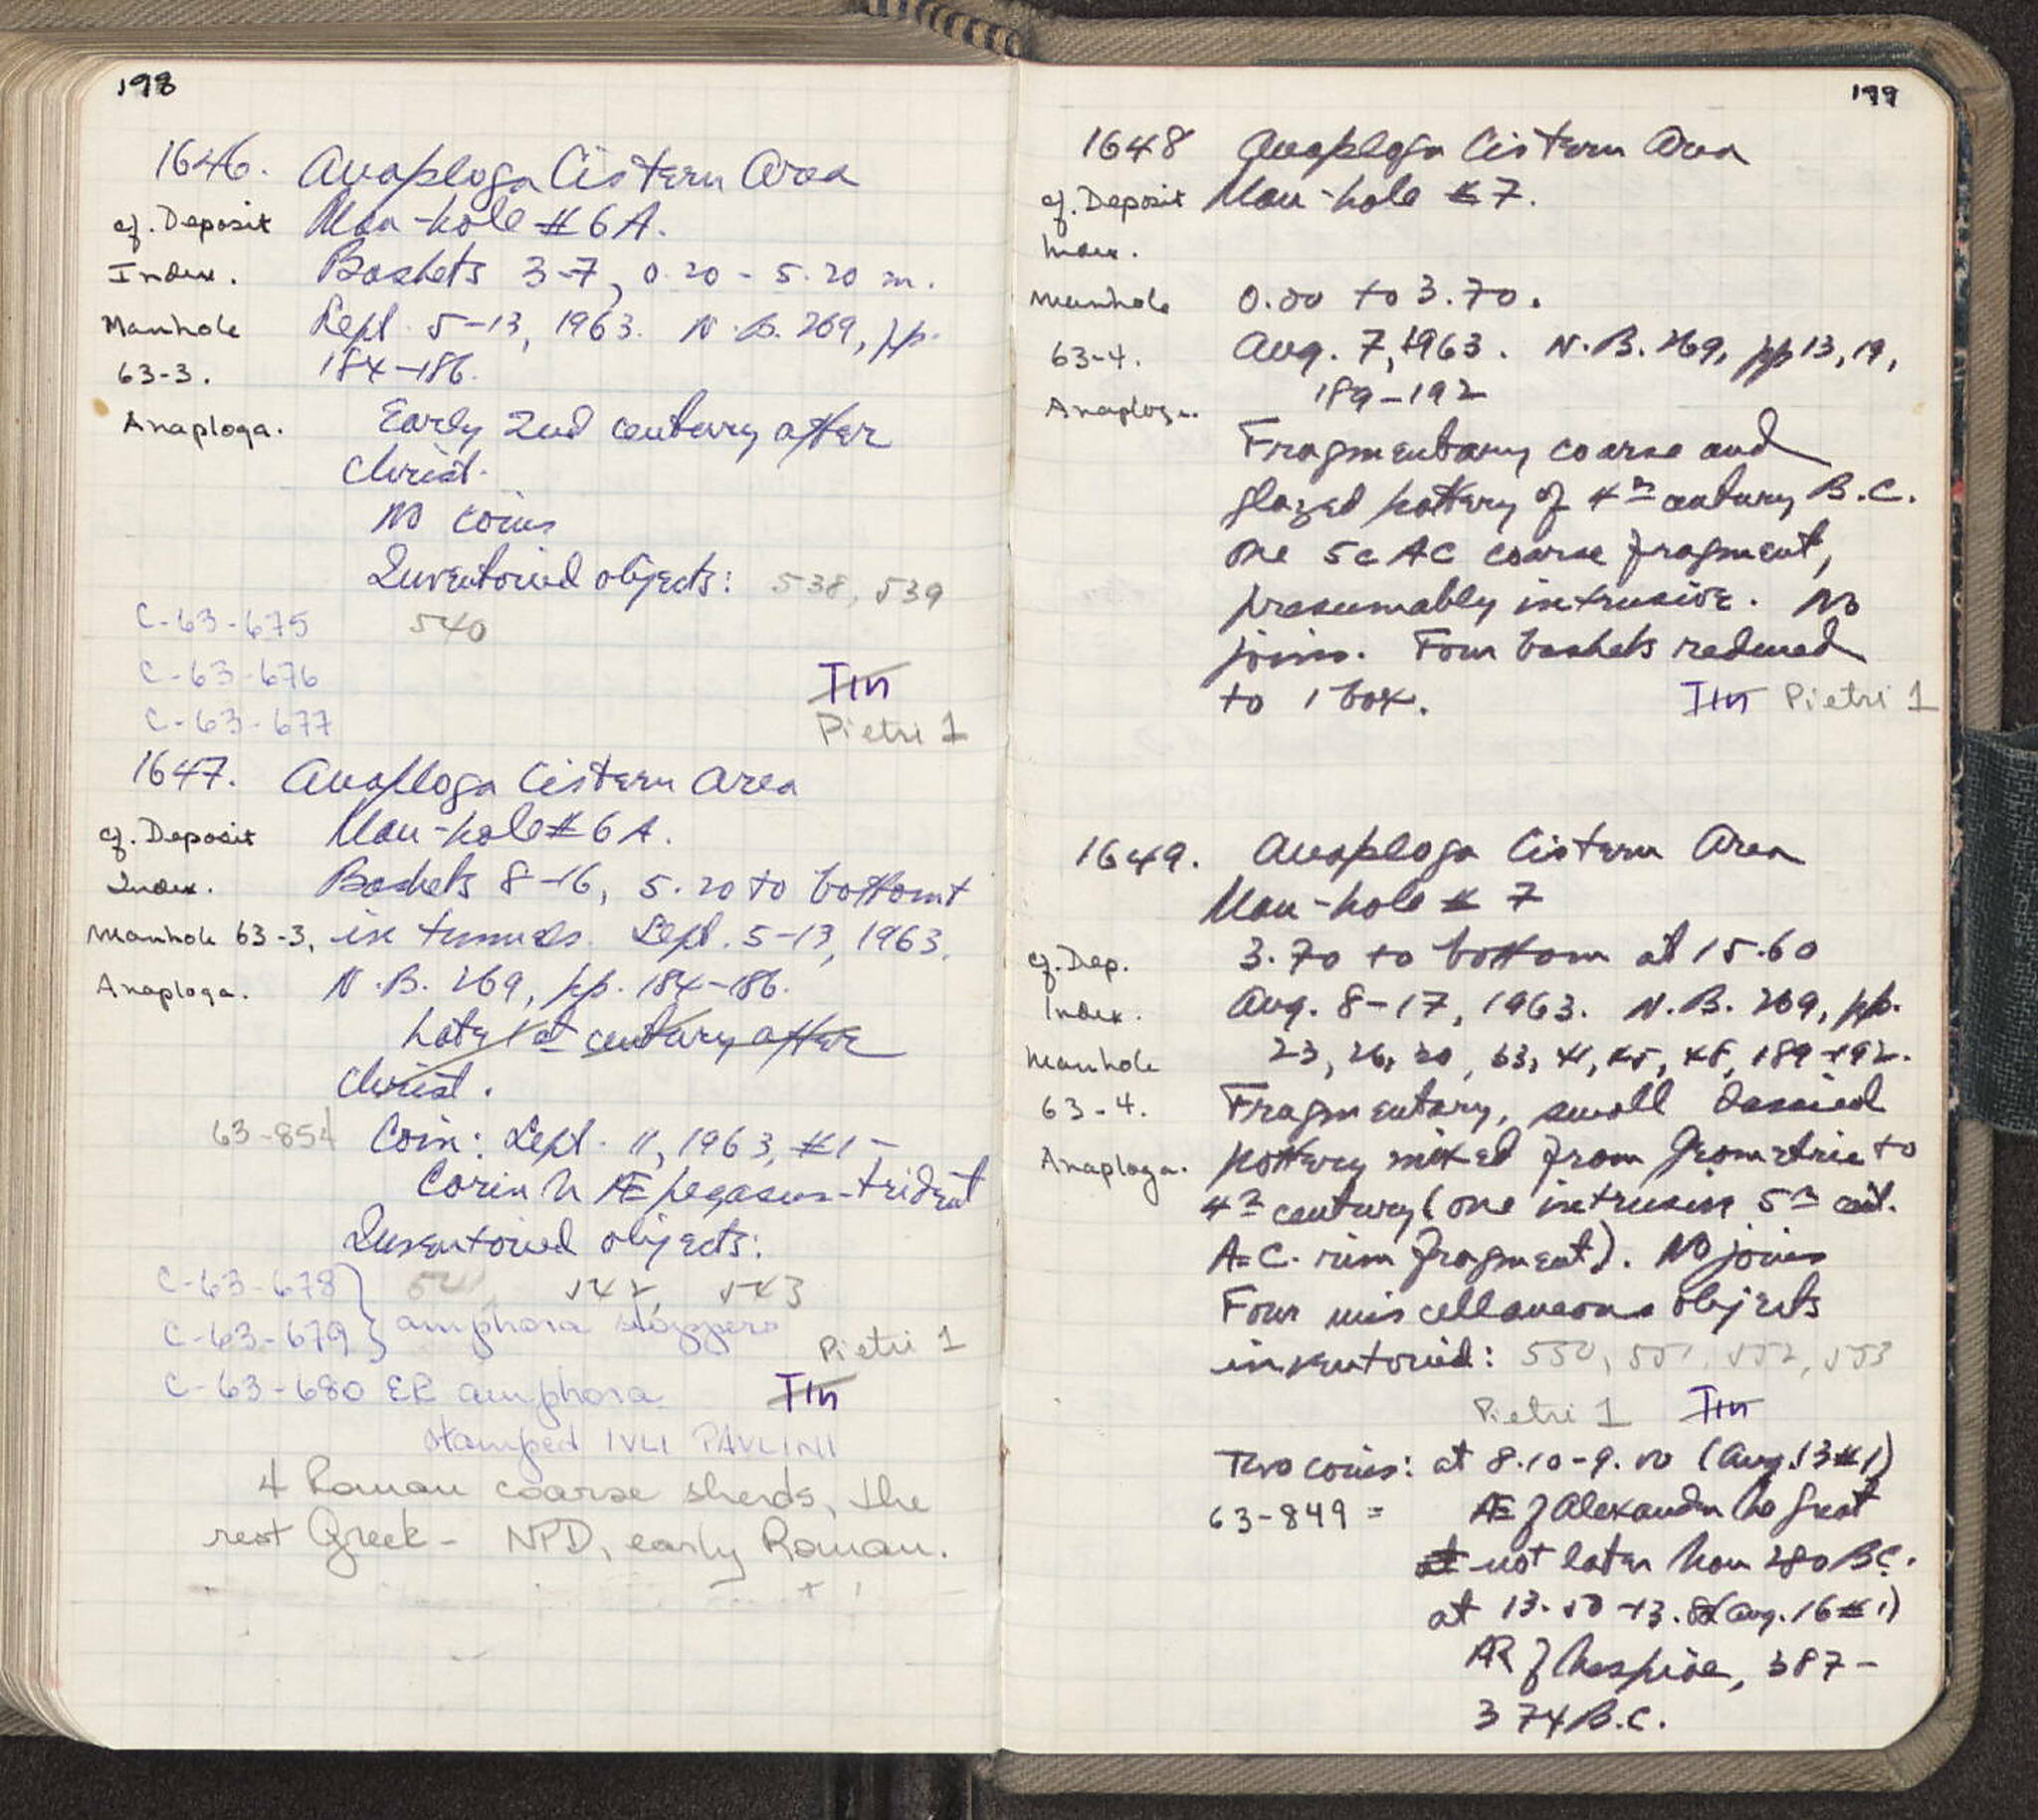 198
1646. Anaploga Cistern Area
cf. Deposit Man-hole #6A.
Index. Baskets 3-7, 0.20 - 5.20 m.
Manhole Sept. 5-13, 1963. N.B. 269, pp.
63-3. 184-186.
Anaploga. Early 2nd century after
Christ.
No coins
Inventoried objects: 538, 539
C-63-675 540
C-63-676 TIn
C-63-677 Pietri 1
1647. Anaploga Cistern Area
cf. Deposit Man-hole #6A.
Index. Baskets 8-16, 5.20 to bottom +
Manhole 63-3, in tunnels. Sept. 5-13, 1963.
Anaploga. N.B. 269, pp. 184-186.
Late 1st century after
Christ.
63-854 Coin: Sept. 11, 1963, #1 -
Corinth Æ pegasus-trident
Inventoried objects:
C-63-678 541, 542, 543
C-63-679 } amphora stoppers
Pietri 1
C-63-680 ER amphora TIn
stamped IVLI PAVLINI
4 Roman coarse sherds, the
rest Greek - NPD, early Roman.
199
1648 Anaploga Cistern Area
cf. Deposit Man-hole #7.
Index.
Manhole 0.00 to 3.70.
63-4. Aug. 7, 1963. N.B. 269, pp 13, 19,
Anaploga. 189-192
Fragmentary coarse and
glazed pottery of 4th century B.C.
One 5c AC coarse fragment,
presumably intrusive. No
joins. Four baskets reduced
to 1 box. TIn Pietri 1
1649. Anaploga Cistern Area
Man-hole # 7
cf. Dep. 3.70 to bottom at 15.60
Index. Aug. 8-17, 1963. N.B. 269, pp.
Manhole 23, 26, 30, 63, 41, 45, 48, 189-192.
63-4. Fragmentary, small
Anaploga. pottery mixed from Geometric to
4th century (one intrusive 5th cent.
A.C. rim fragment). No joins
Four miscellaneous objects
inventoried: 550, 551, 552, 553
Pietri 1 TIn
Two coins: at 8.10-9.00 (Aug. 13 #1)
63-849 = Æ of Alexander the Great
not later than 280 B.C.
at 13.50 - (Aug. 16 #1)
AR of Thespiae, 387-
374 B.C.